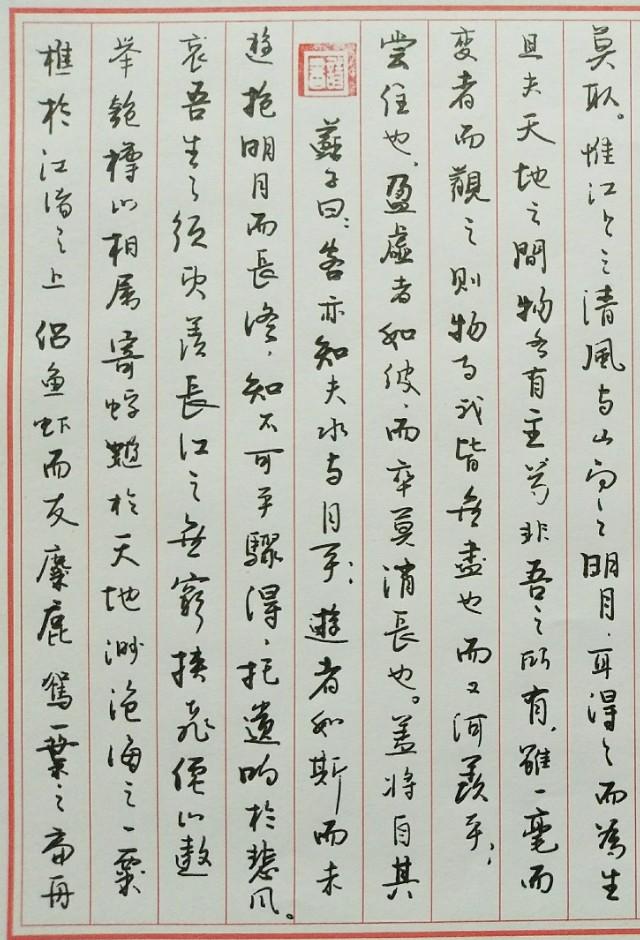 樵於江渚之上侣鱼虾而友麋鹿驾一葉之扁舟
举匏樽以相属寄蜉蝣於天地渺沧海之一粟
哀吾生之须臾羡長江之無窮挟飛僊以遨
遊抱明月而長终，知不可乎驟得，托遺响於悲风。
蘇子曰：客亦知夫水与月乎；逝者如斯而未
嘗往也，盈虚者如彼，而卒莫消長也。盖将自其
变者而觀之则物与我皆無盡也而又何羡乎；
且夫天地之間物各有主苟非吾之所有，雖一毫而
莫取。惟江上之清風与山间之明月，耳得之而為生